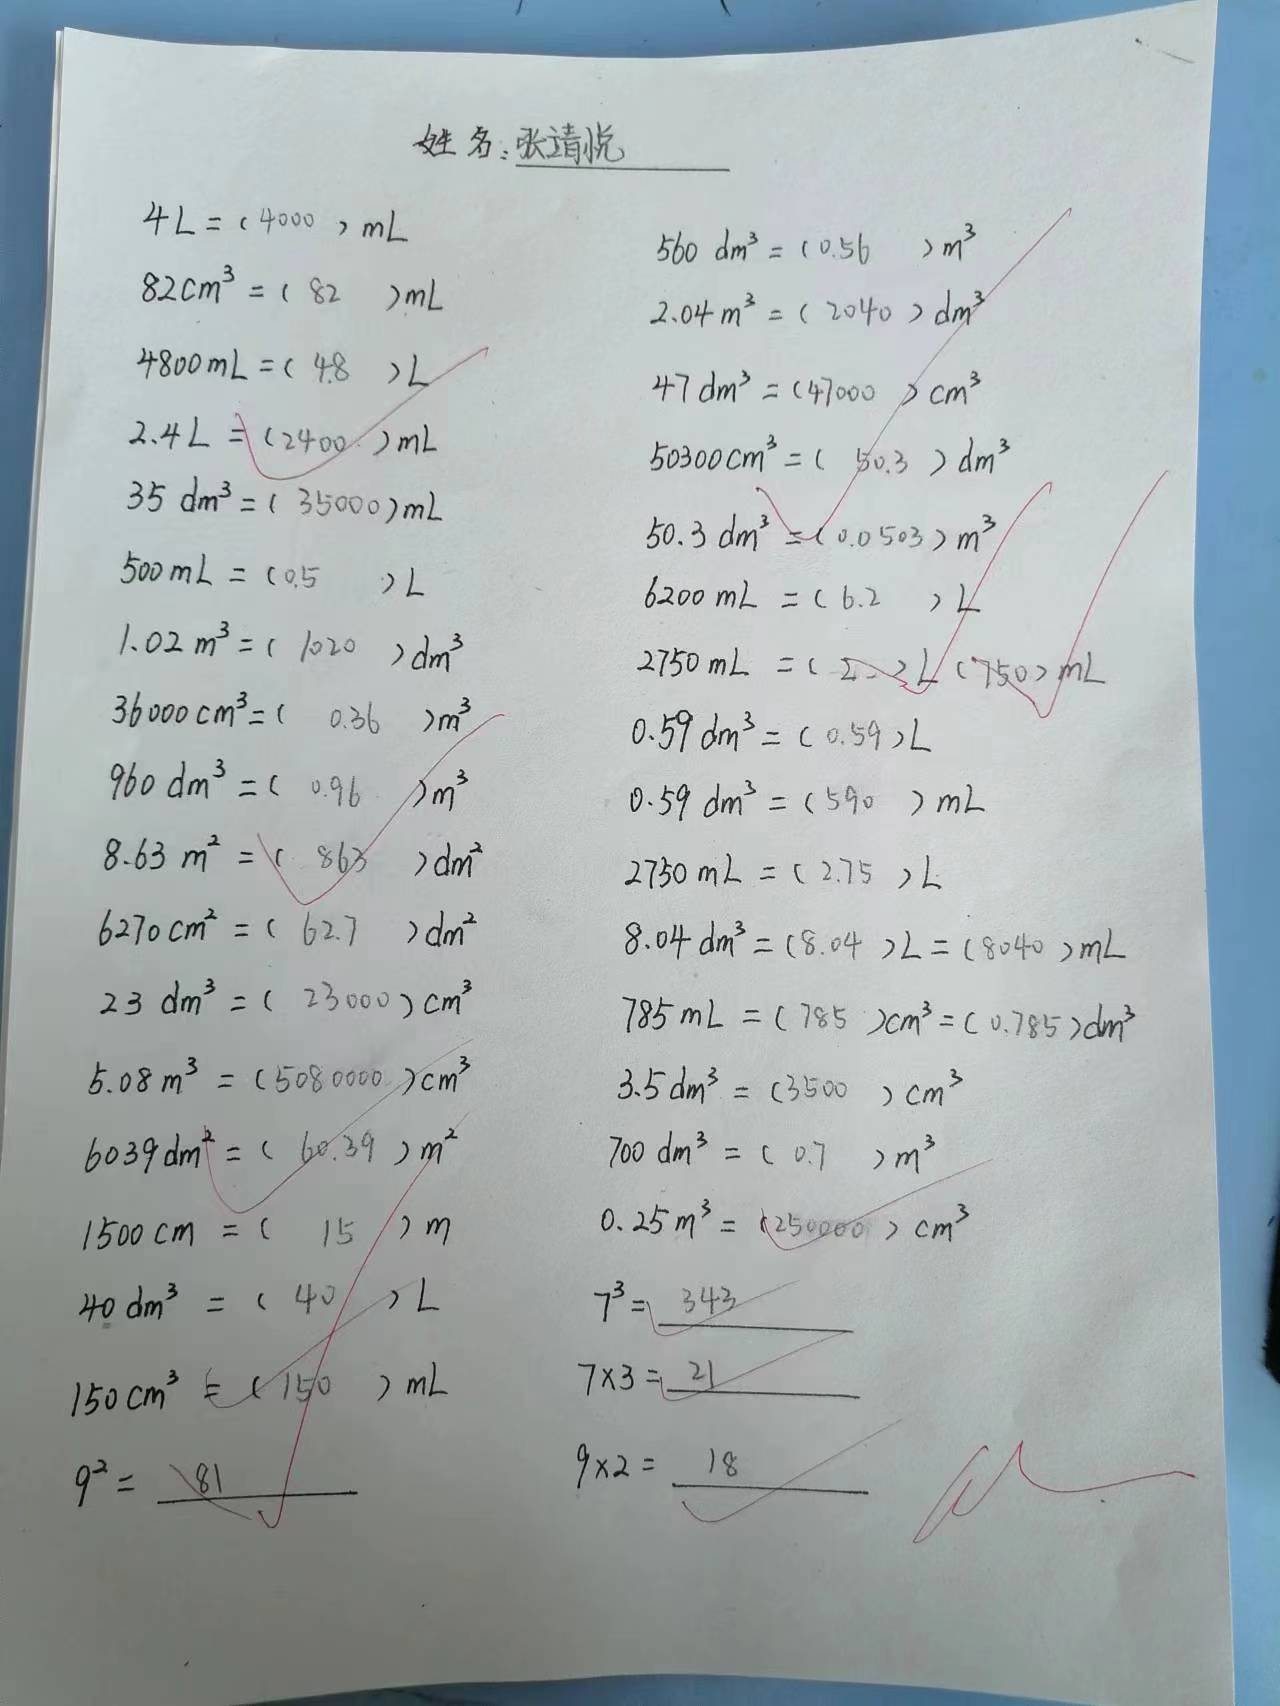 姓名:张靖悦
4L=(4000)mL
82cm³=(82)mL
4800mL=(4.8)L
2.4L=(2400)mL
35dm³=(35000)mL
500mL=(0.5)L
1.02m³=(1020)dm³
36000cm³=(0.36)m³
960dm³=(0.96)m³
8.63m²=(863)dm²
6270cm²=(62.7)dm²
23dm³=(23000)cm³
5.08m³=(5080000)cm³
6039dm²=(60.39)m²
1500cm=(15)m
40dm³=(40)L
150cm³=(150)mL
9²=81
560dm³=(0.56)m³
2.04m³=(2040)dm³
47dm³=(47000)cm³
50300cm³=(50.3)dm³
50.3dm³=(0.0503)m³
6200mL=(6.2)L
2750mL=( )L(750)mL
0.59dm³=(0.59)L
0.59dm³=(590)mL
2750mL=(2.75)L
8.04dm³=(8.04)L=(8040)mL
785mL=(785)cm³=(0.785)dm³
3.5dm³=(3500)cm³
700dm³=(0.7)m³
0.25m³=(250000)cm³
7³=343
7×3=21
9×2=18